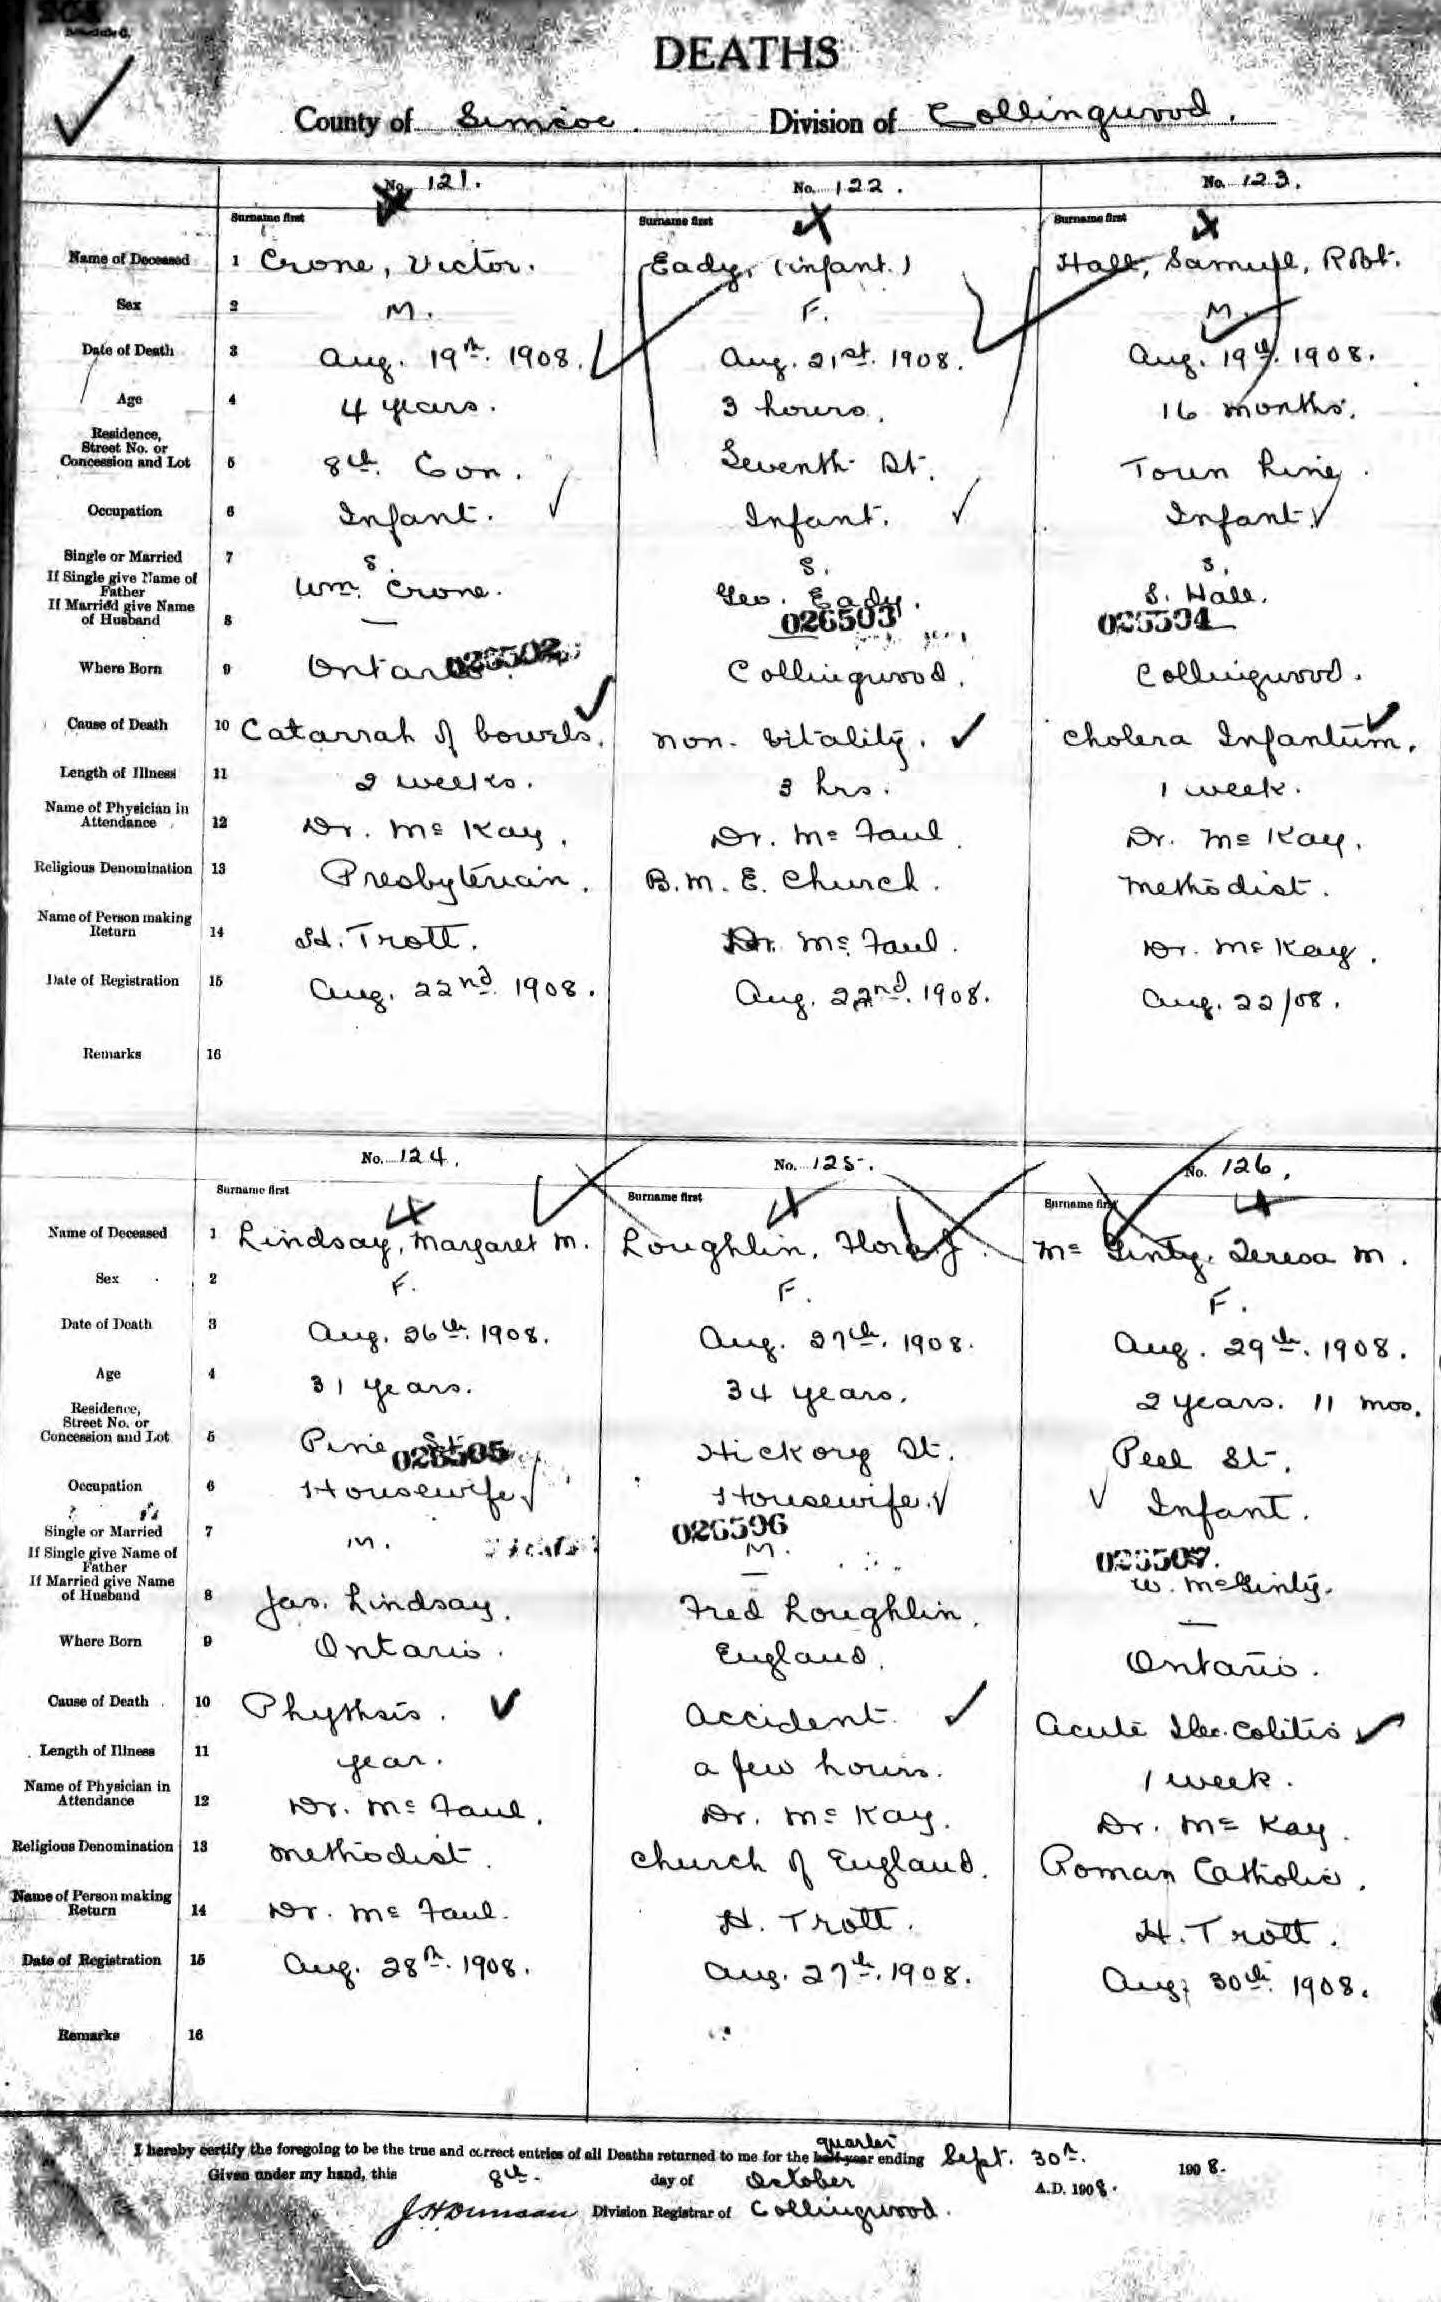 DEATHS
County of Simcoe. Division of Collingwood.
No. 121. No. 122. No. 123.
Surname first Surname first Surname first
Name of Deceased 1 Crone, Victor. Eady, (infant.) Hall, Samuel, Robt.
Sex 2 M. F. M.
Date of Death 3 Aug. 19th. 1908. Aug. 21st. 1908. Aug. 19th. 1908.
Age 4 4 years. 3 hours. 16 months.
Residence,
Street No. or
Concession and Lot 5 8th. Con. Seventh St. Town Line.
Occupation 6 Infant. Infant. Infant.
Single or Married 7 S. S. S.
If Single give Name of
Father Wm. Crone. Geo. Eady. S. Hall.
If Married give Name
of Husband 8 — 026503 —
Where Born 9 Ontario. 026502 Collingwood. Collingwood.
Cause of Death 10 Catarrah of bowels. non-vitality. Cholera Infantum.
Length of Illness 11 2 weeks. 3 hrs. 1 week.
Name of Physician in
Attendance 12 Dr. McKay. Dr. McFaul. Dr. McKay.
Religious Denomination 13 Presbyterian. B.M.E. Church. Methodist.
Name of Person making
Return 14 H. Trott. Dr. McFaul. Dr. McKay.
Date of Registration 15 Aug. 22nd. 1908. Aug. 22nd. 1908. Aug. 22/08.
Remarks 16
No. 124. No. 125. No. 126.
Surname first Surname first Surname first
Name of Deceased 1 Lindsay, Margaret M. Loughlin, Flora J. McGinty. Teresa M.
Sex 2 F. F. F.
Date of Death 3 Aug. 26th. 1908. Aug. 27th. 1908. Aug. 29th. 1908.
Age 4 31 years. 34 years. 2 years. 11 mos.
Residence,
Street No. or
Concession and Lot 5 Pine St. 026505 Hickory St. Peel St.
Occupation 6 Housewife Housewife. Infant.
Single or Married 7 M. 026506 M. 026507.
If Single give Name of
Father — W. McGinty.
If Married give Name
of Husband 8 Jas. Lindsay. Fred Loughlin. —
Where Born 9 Ontario. England. Ontario.
Cause of Death 10 Phythsis. Accident. Acute Ileo. Colitis
Length of Illness 11 year. a few hours. 1 week.
Name of Physician in
Attendance 12 Dr. McFaul. Dr. McKay. Dr. McKay.
Religious Denomination 13 Methodist. Church of England. Roman Catholic.
Name of Person making
Return 14 Dr. McFaul. H. Trott. H. Trott.
Date of Registration 15 Aug. 28th. 1908. Aug. 27th. 1908. Aug. 30th. 1908.
Remarks 16
quarter
I hereby certify the foregoing to be the true and correct entries of all Deaths returned to me for the half-year ending Sept. 30th. 1908.
Given under my hand, this 8th. day of October A.D. 1908.
Division Registrar of Collingwood.